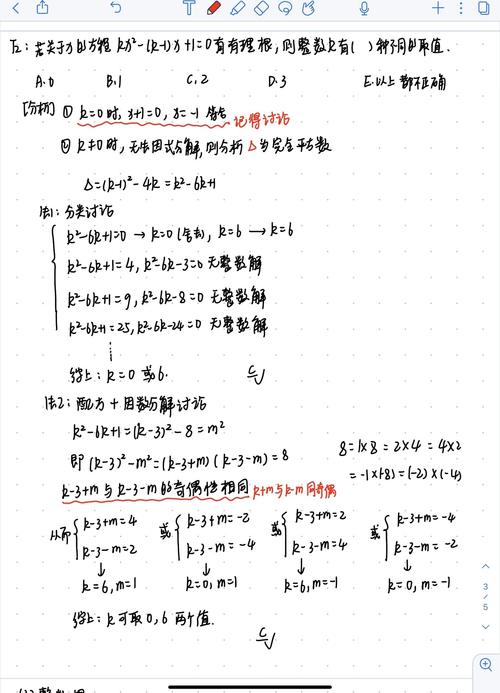 左: 若关于x的方程 kx²-(k-1)x+1=0有有理根,则整数k有( )种不同的取值.
A.0 B.1 C.2 D.3 E.以上都不正确
[分析] ① k=0时, x+1=0, x=-1 记得讨论
② k≠0时, 无法因式分解,则分析 Δ为完全平方数
Δ=(k-1)²-4k=k²-6k+1
法1:分类讨论
k²-6k+1=0 → k=0 (舍去), k=6 → k=6
k²-6k+1=4, k²-6k-3=0 无整数解
k²-6k+1=9, k²-6k-8=0 无整数解
k²-6k+1=25, k²-6k-24=0 无整数解
综上: k=0 或6. C
法2:配方+因数分解讨论
k²-6k+1=(k-3)²-8=m²
即 (k-3)²-m²=(k-3+m)(k-3-m)=8
8=1×8=2×4=4×2
=-1×(-8)=(-2)×(-4)
k-3+m与k-3-m的奇偶性相同 k+m与k-m同奇偶
从而 k-3+m=4 或 k-3+m=-2 或 k-3+m=2 或 k-3+m=-4
k-3-m=2 k-3-m=-4 k-3-m=4 k-3-m=-2
k=6, m=1 k=0, m=1 k=6, m=-1 k=0, m=-1
综上: k可取0,6 两个值.
C
3
/
5